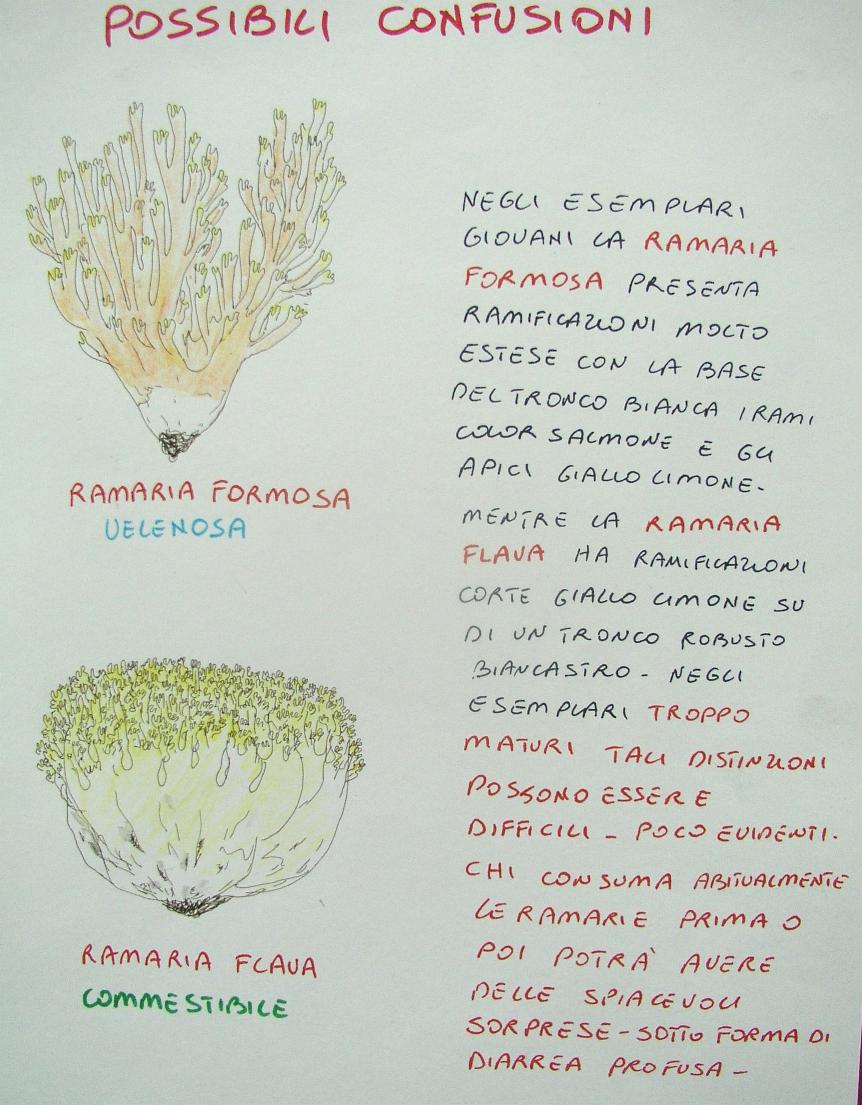 POSSIBILI CONFUSIONI
RAMARIA FORMOSA
VELENOSA
RAMARIA FLAVA
COMMESTIBILE
NEGLI ESEMPLARI
GIOVANI LA RAMARIA
FORMOSA PRESENTA
RAMIFICAZIONI MOLTO
ESTESE CON LA BASE
DEL TRONCO BIANCA I RAMI
COLOR SALMONE E GLI
APICI GIALLO LIMONE-
MENTRE LA RAMARIA
FLAVA HA RAMIFICAZIONI
CORTE GIALLO LIMONE SU
DI UN TRONCO ROBUSTO
BIANCASTRO - NEGLI
ESEMPLARI TROPPO
MATURI TALI DISTINZIONI
POSSONO ESSERE
DIFFICILI - POCO EVIDENTI.
CHI CONSUMA ABITUALMENTE
LE RAMARIE PRIMA O
POI POTRA' AVERE
DELLE SPIACEVOLI
SORPRESE - SOTTO FORMA DI
DIARREA PROFUSA -